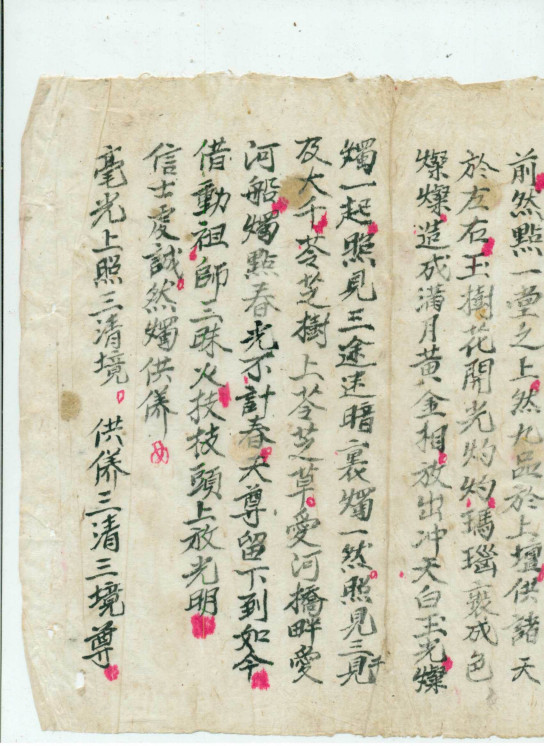 前然點一堂之上然九品於上壇供諸天
於左右玉樹花開光灼灼瑪瑙裝成色
燦燦造成满月黄金相放出冲天白玉光燦
燭一起照見三途迷暗裏燭一然照見三見千
及大千苓芝樹上苓芝草愛河橋畔愛
河船燭點春光不計春天尊留下到如今
借動祖師三昧火技技頭上放光明
信士虔誠然燭供俻
毫光上照三清境 供俻三清三境尊